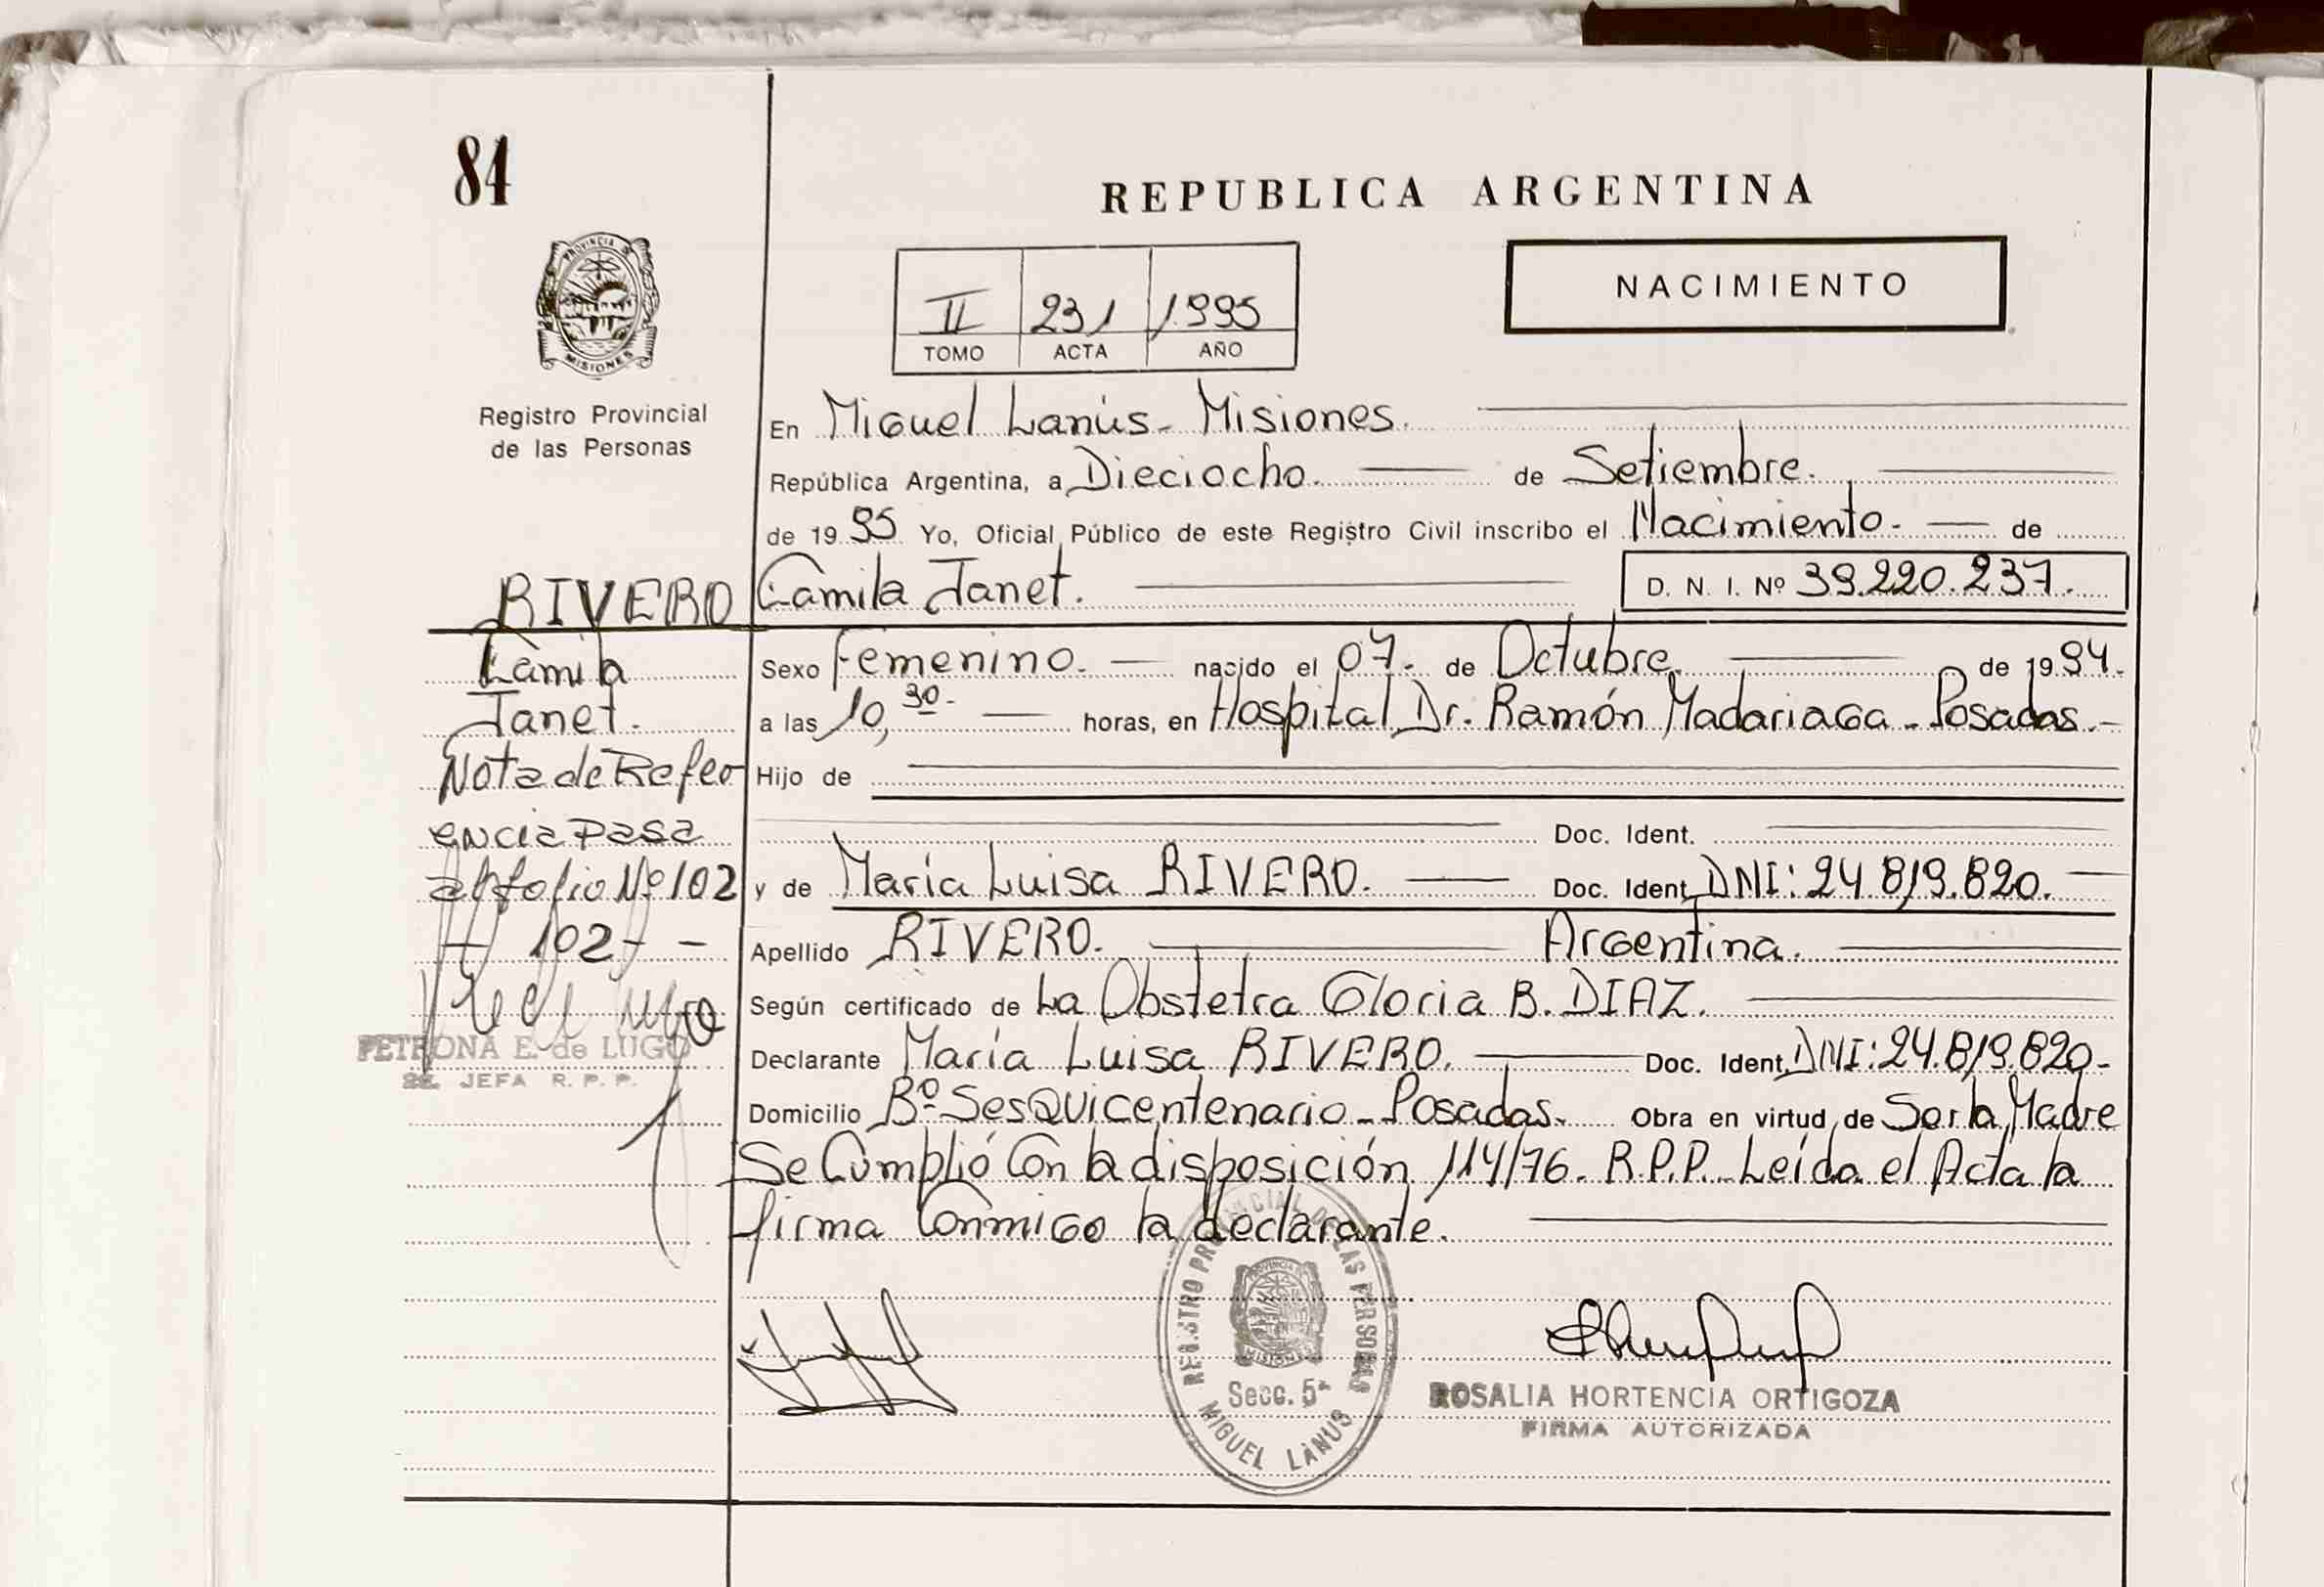 84
REPUBLICA ARGENTINA
PROVINCIA DE
MISIONES
NACIMIENTO
II 231 1995
TOMO ACTA AÑO
Registro Provincial
de las Personas
En Miguel Lanús - Misiones.
República Argentina, a Dieciocho. de Setiembre.
de 1995 Yo, Oficial Público de este Registro Civil inscribo el Nacimiento. de
RIVERO Camila Janet. D. N. I. Nº 39.220.237.
Camila
Janet.
Nota de Refer
encia Pasa
al folio Nº 102
- 102 -
PETRONA E. de LUGO
JEFA R. P. P.
Sexo Femenino. nacido el 07. de Octubre. de 1994.
a las 10,30. horas, en Hospital Dr. Ramón Madariaga - Posadas.
Hijo de
Doc. Ident.
y de María Luisa RIVERO. Doc. Ident. DNI: 24.819.820.
Apellido RIVERO. Argentina.
Según certificado de La Obstetra Gloria B. DIAZ.
Declarante María Luisa RIVERO. Doc. Ident. DNI: 24.819.820.
Domicilio Bº Sesquicentenario - Posadas. Obra en virtud de Ser la Madre
Se Cumplió Con la disposición 114/76. R.P.P. Leída el Acta la
firma Conmigo la declarante.
REGISTRO PROVINCIAL DE LAS PERSONAS
PROVINCIA DE
MISIONES
Secc. 5ª
MIGUEL LANUS
ROSALIA HORTENCIA ORTIGOZA
FIRMA AUTORIZADA